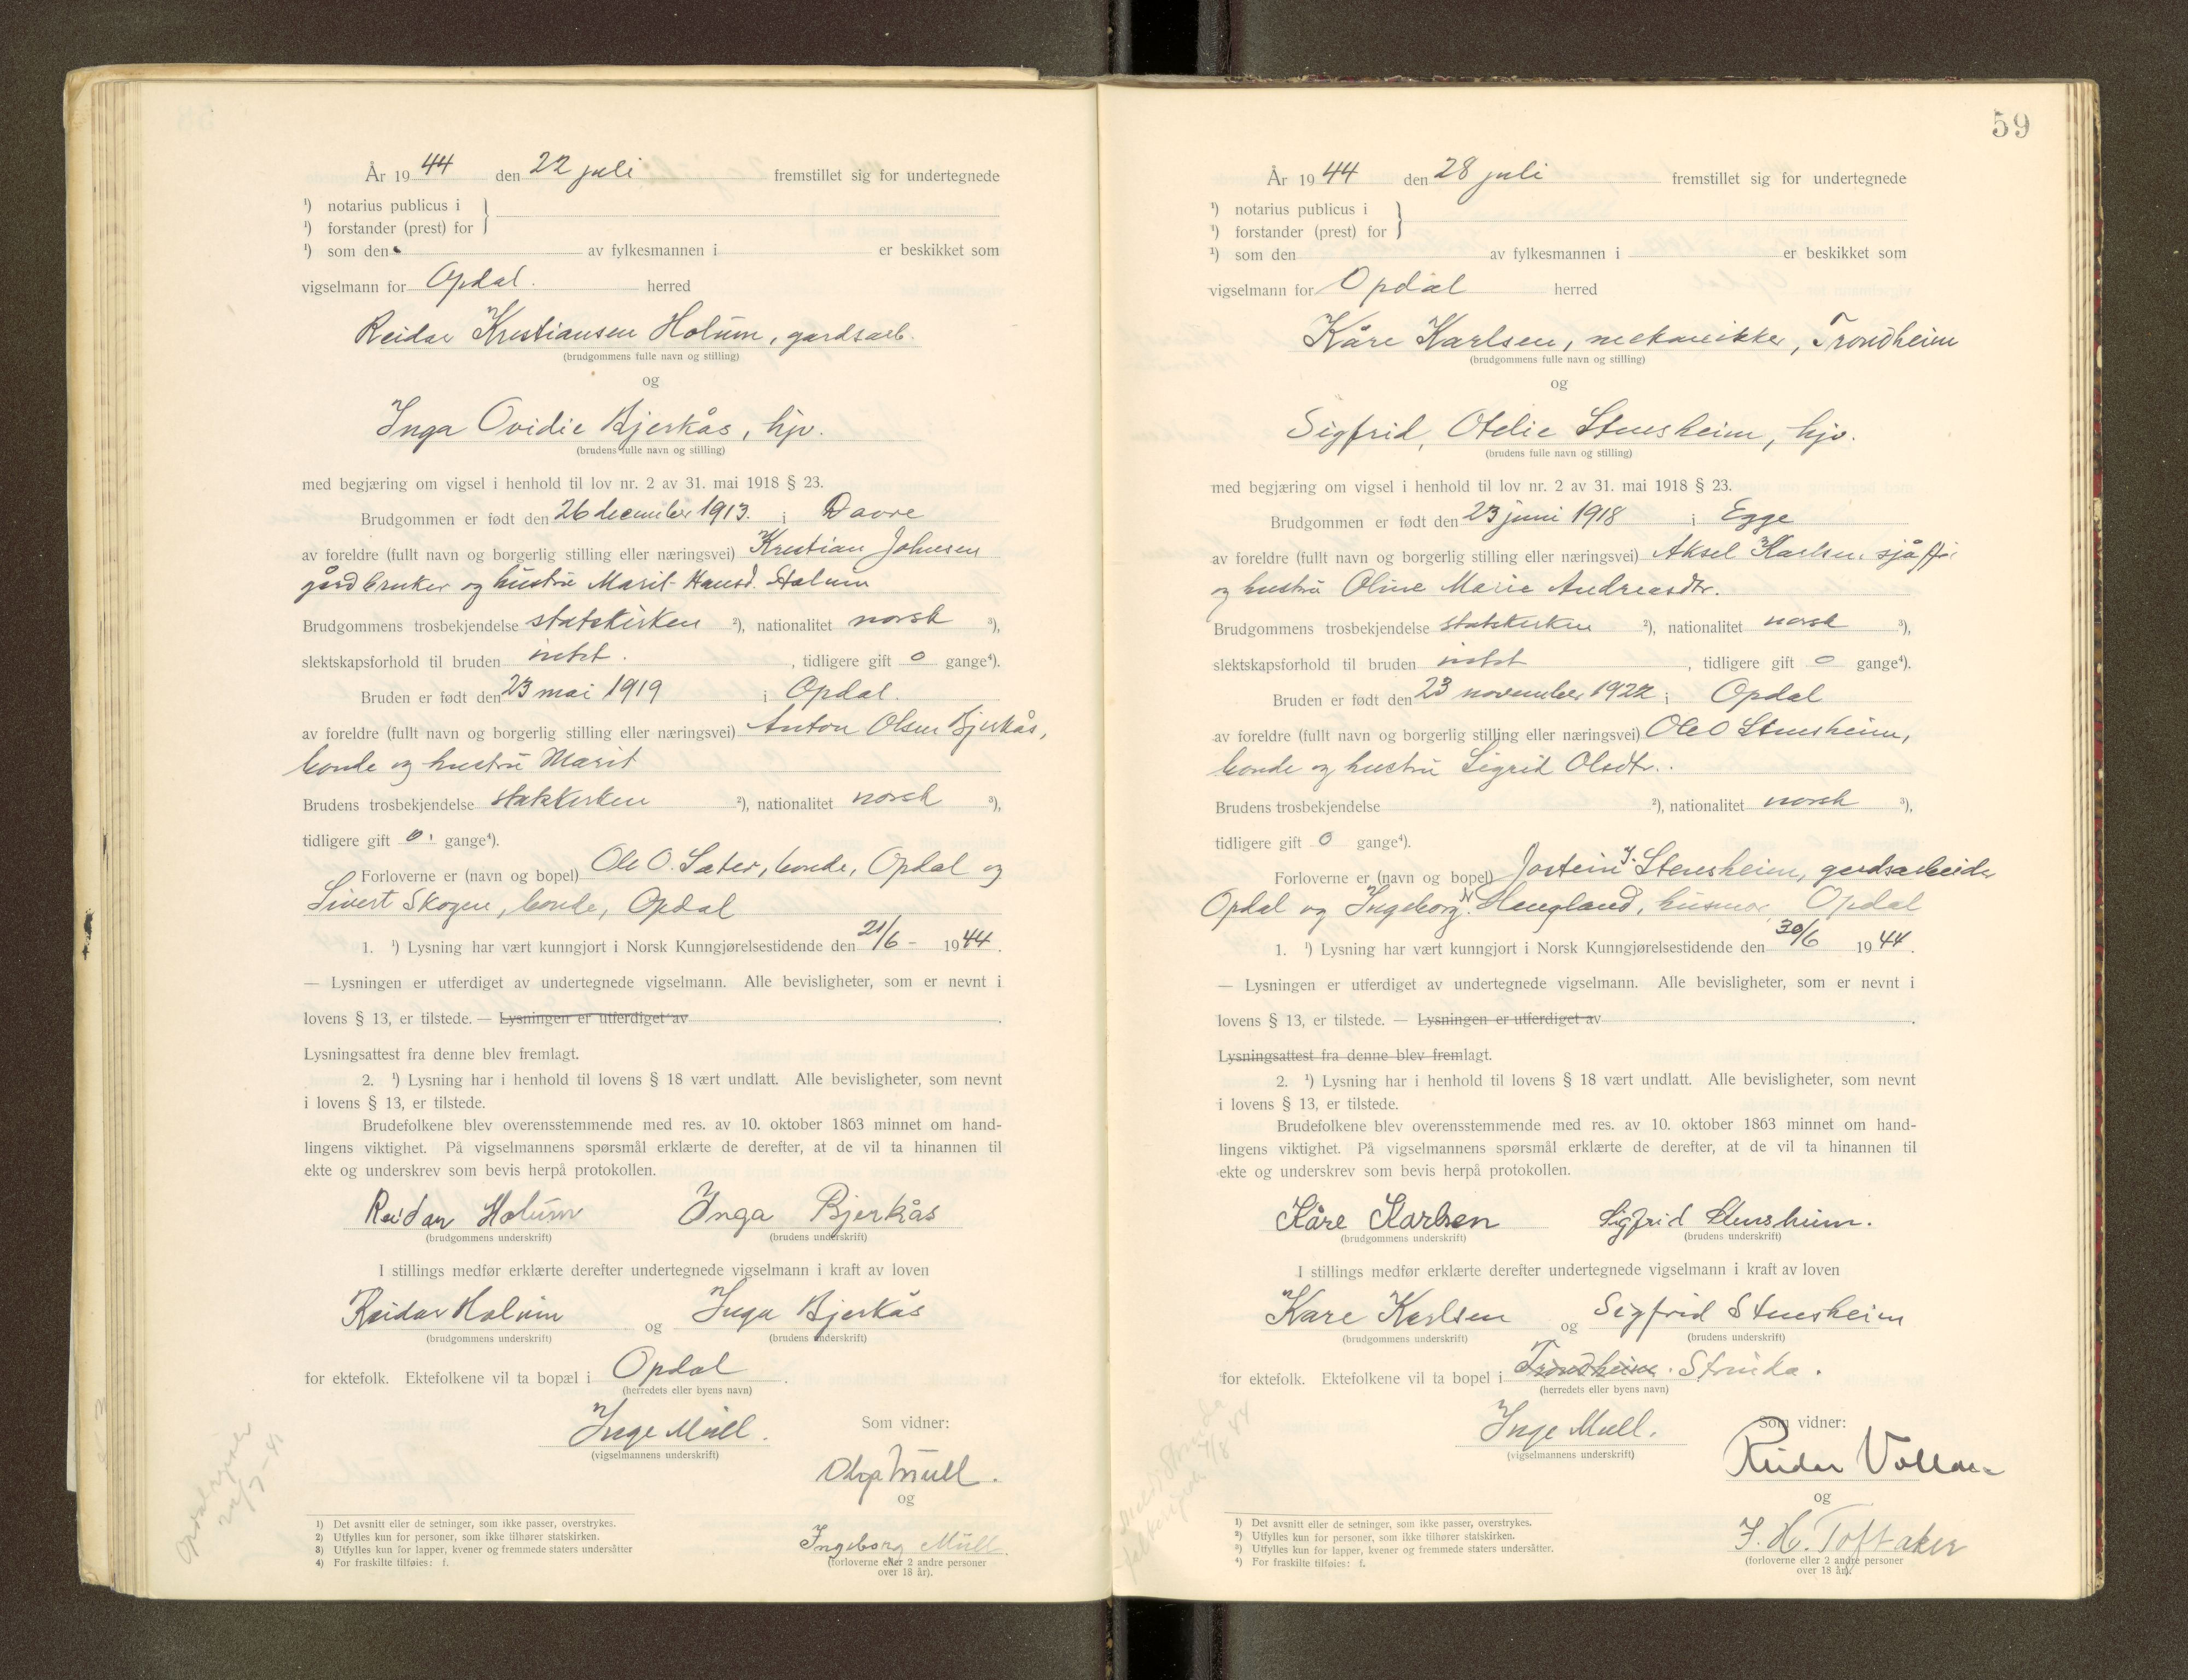 År 1944 den 22 juli fremstillet sig for undertegnede
¹) notarius publicus i
¹) forstander (prest) for
¹) som den av fylkesmannen i er beskikket som
vigselmann for Opdal. herred
Reidar Kristiansen Holum, gardsarb.
(brudgommens fulle navn og stilling)
og
Inga Ovidie Bjerkås, hjv.
(brudens fulle navn og stilling)
med begjæring om vigsel i henhold til lov nr. 2 av 31. mai 1918 § 23.
Brudgommen er født den 26 december 1913. i Dovre
av foreldre (fullt navn og borgerlig stilling eller næringsvei) Kristian Johnsen
gårdbruker og hustru Marit Hansd. Holum
Brudgommens trosbekjendelse statskirken ²), nationalitet norsk ³),
slektskapsforhold til bruden intet. , tidligere gift 0 gange⁴).
Bruden er født den 23 mai 1919 i Opdal.
av foreldre (fullt navn og borgerlig stilling eller næringsvei) Anton Olsen Bjerkås,
bonde og hustru Marit
Brudens trosbekjendelse statskirken ²), nationalitet norsk ³),
tidligere gift 0. gange⁴).
Forloverne er (navn og bopel) Ole O. Sæter, bonde, Opdal og
Sivert Skogen, bonde, Opdal
1. ¹) Lysning har vært kunngjort i Norsk Kunngjørelsestidende den 21/6 - 1944.
— Lysningen er utferdiget av undertegnede vigselmann. Alle bevisligheter, som er nevnt i
lovens § 13, er tilstede. — Lysningen er utferdiget av .
Lysningsattest fra denne blev fremlagt.
2. ¹) Lysning har i henhold til lovens § 18 vært undlatt. Alle bevisligheter, som nevnt
i lovens § 13, er tilstede.
Brudefolkene blev overensstemmende med res. av 10. oktober 1863 minnet om hand-
lingens viktighet. På vigselmannens spørsmål erklærte de derefter, at de vil ta hinannen til
ekte og underskrev som bevis herpå protokollen.
Reidar Holum Inga Bjerkås
(brudgommens underskrift) (brudens underskrift)
I stillings medfør erklærte derefter undertegnede vigselmann i kraft av loven
Reidar Holum og Inga Bjerkås
(brudgommens underskrift) (brudens underskrift)
for ektefolk. Ektefolkene vil ta bopæl i Opdal .
(herredets eller byens navn)
Inge Mull.
(vigselmannens underskrift)
Som vidner:
Olga Mull.
og
Ingeborg Mull
(forloverne eller 2 andre personer
over 18 år).
¹) Det avsnitt eller de setninger, som ikke passer, overstrykes.
²) Utfylles kun for personer, som ikke tilhører statskirken.
³) Utfylles kun for lapper, kvener og fremmede staters undersåtter
⁴) For fraskilte tilføies: f.
59
År 1944 den 28 juli fremstillet sig for undertegnede
¹) notarius publicus i
¹) forstander (prest) for
¹) som den av fylkesmannen i er beskikket som
vigselmann for Opdal herred
Kåre Karlsen, mekanikker, Trondheim
(brudgommens fulle navn og stilling)
og
Sigfrid, Otelie Stensheim, hjv.
(brudens fulle navn og stilling)
med begjæring om vigsel i henhold til lov nr. 2 av 31. mai 1918 § 23.
Brudgommen er født den 23 juni 1918 i Egge
av foreldre (fullt navn og borgerlig stilling eller næringsvei) Aksel Karlsen sjåffør
og hustru Oline Marie Andreasdtr.
Brudgommens trosbekjendelse statskirken ²), nationalitet norsk ³),
slektskapsforhold til bruden intet , tidligere gift 0 gange⁴).
Bruden er født den 23 november 1922 i Opdal
av foreldre (fullt navn og borgerlig stilling eller næringsvei) Ole O Stensheim,
bonde og hustru Sigrid Olsdtr.
Brudens trosbekjendelse ²), nationalitet norsk ³),
tidligere gift 0 gange⁴).
Forloverne er (navn og bopel) Jostein J. Stensheim, gardsarbeider
Opdal og Ingeborg N. Haugland, husmor, Opdal
1. ¹) Lysning har vært kunngjort i Norsk Kunngjørelsestidende den 30/6 1944.
— Lysningen er utferdiget av undertegnede vigselmann. Alle bevisligheter, som er nevnt i
lovens § 13, er tilstede. — Lysningen er utferdiget av .
Lysningsattest fra denne blev fremlagt.
2. ¹) Lysning har i henhold til lovens § 18 vært undlatt. Alle bevisligheter, som nevnt
i lovens § 13, er tilstede.
Brudefolkene blev overensstemmende med res. av 10. oktober 1863 minnet om hand-
lingens viktighet. På vigselmannens spørsmål erklærte de derefter, at de vil ta hinannen til
ekte og underskrev som bevis herpå protokollen.
Kåre Karlsen Sigfrid Stensheim.
(brudgommens underskrift) (brudens underskrift)
I stillings medfør erklærte derefter undertegnede vigselmann i kraft av loven
Kåre Karlsen og Sigfrid Stensheim
(brudgommens underskrift) (brudens underskrift)
for ektefolk. Ektefolkene vil ta bopel i Trondheim. Strinda.
(herredets eller byens navn)
Inge Mull.
(vigselmannens underskrift)
Som vidner:
Reidar
og
J. H. Toftaker
(forloverne eller 2 andre personer
over 18 år).
¹) Det avsnitt eller de setninger, som ikke passer, overstrykes.
²) Utfylles kun for personer, som ikke tilhører statskirken.
³) Utfylles kun for lapper, kvener og fremmede staters undersåtter.
⁴) For fraskilte tilføies: f.